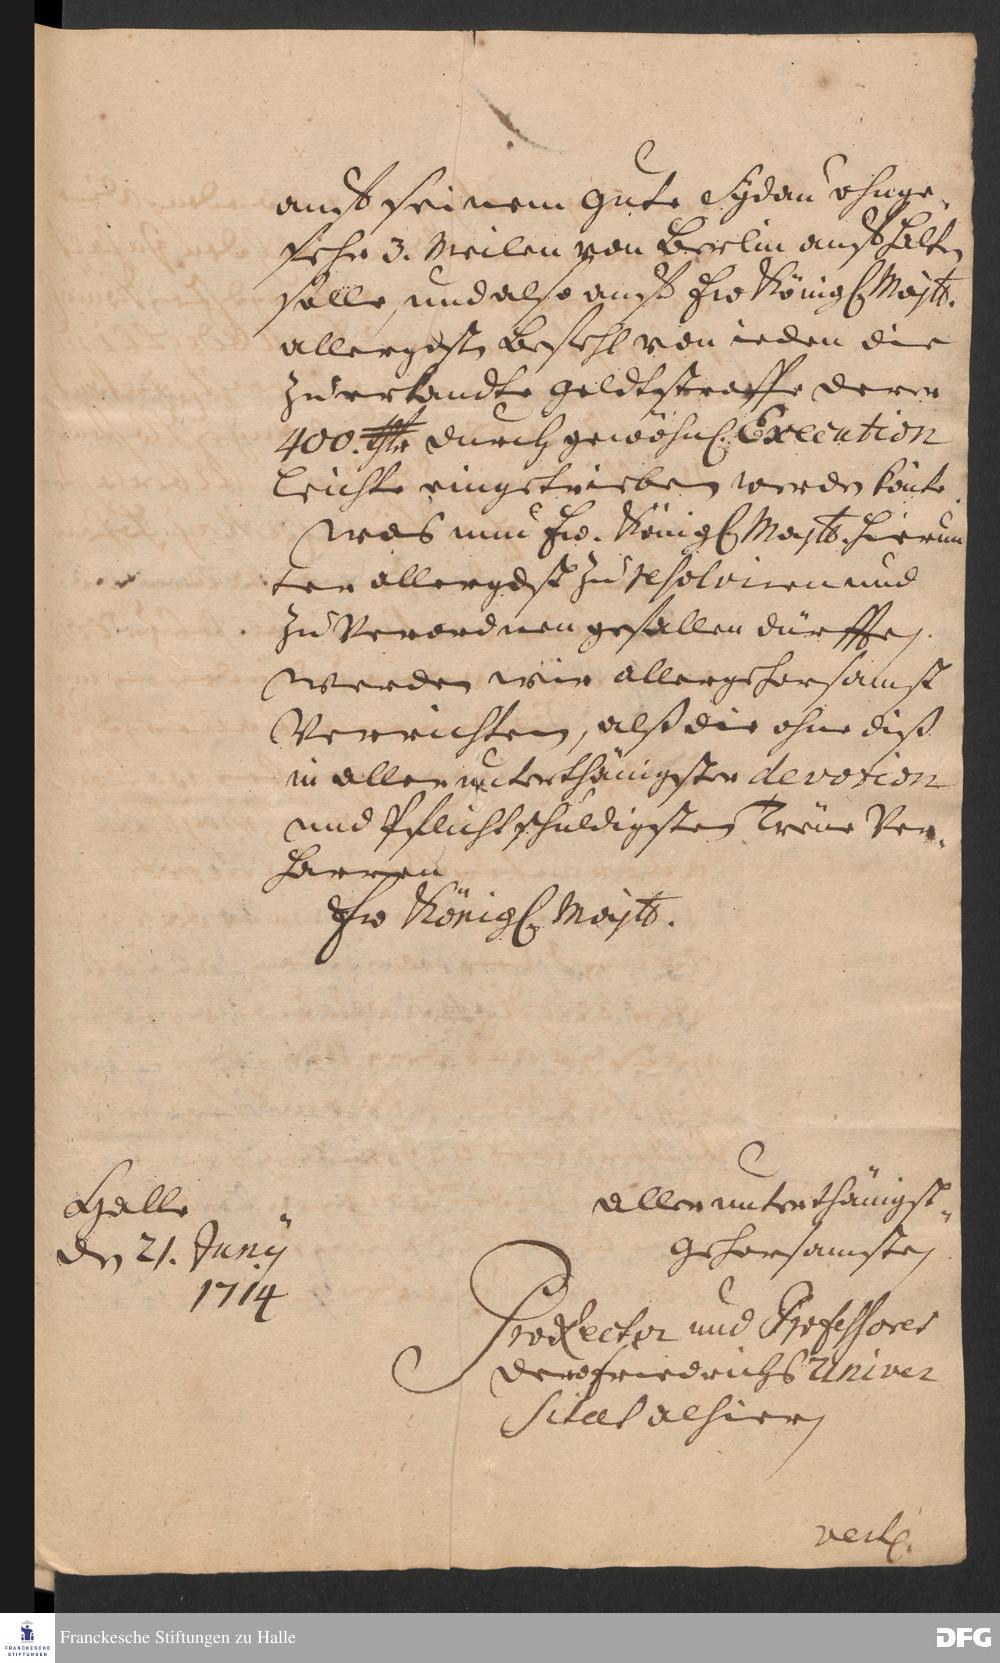 auff seinem gute Sydau ohnge-
fehr 3. Meilen von Berlin auffhalten
solle, und also auff Ew Königl. Majtt.
allergdst. Befehl von ieden die
zuerkandte geldtstraffe derer
400. thlr durch gewöhnl. Execution
leicht eingetrieben werden könte.
Was nun Ew. Königl. Majtt. hierun
ter allergdst zu resolviren und
zu Verordnen gefallen dürffte,
werden wir allergehorsamst
Verrichten, alß die ohne diß
in allerunterthänigster devotion
und Pflichtschuldigsten Treüe Ver-
harren
Ew Königl. Majtt.
Halle
den 21. Junÿ
1714
allerunterthänigst-
gehorsamste
ProRector und Professores
dero Friedrichs Univer
sität alhier
Franckesche Stiftungen zu Halle
FRANCKESCHE
STIFTUNGEN
DFG